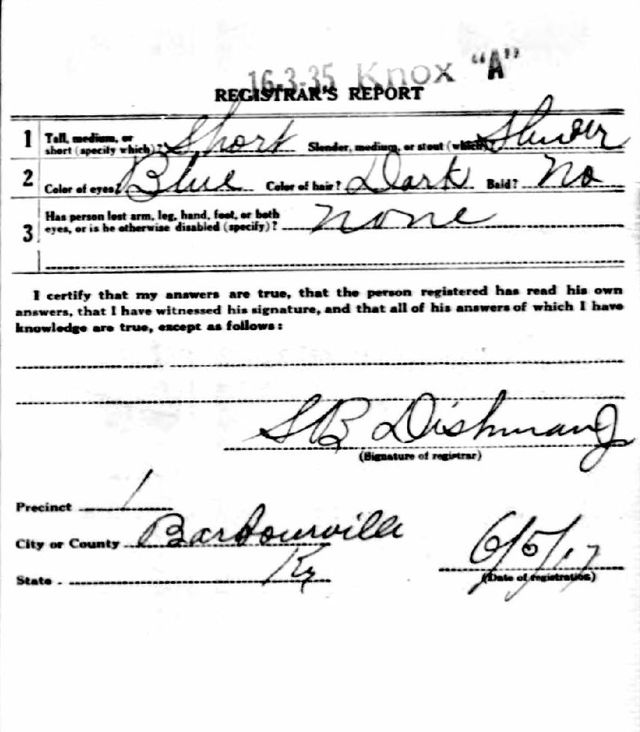 16-3-35 Knox "A"
REGISTRAR'S REPORT
1 Tall, medium, or short (specify which)? Short Slender, medium, or stout (which)? Slender
2 Color of eyes? Blue Color of hair? Dark Bald? No
3 Has person lost arm, leg, hand, foot, or both
eyes, or is he otherwise disabled (specify)? none
I certify that my answers are true, that the person registered has read his own
answers, that I have witnessed his signature, and that all of his answers of which I have
knowledge are true, except as follows:
S B Dishman
(Signature of registrar)
Precinct 1
City or County Barbourville
State Ky 6/5/17
(Date of registration)